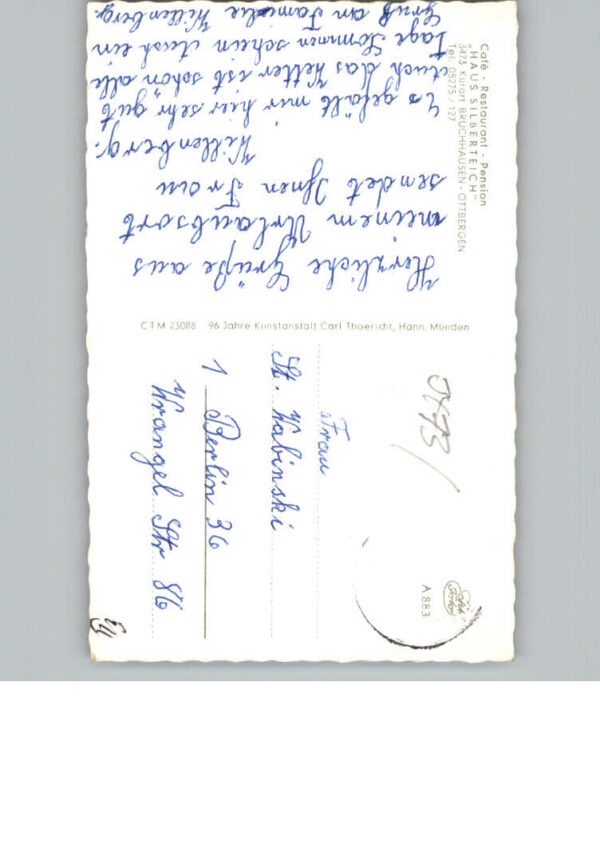 Café - Restaurant - Pension
"HAUS SILBERTEICH"
3475 Kurort BRUCHHAUSEN - OTTBERGEN
Tel. 05275 / 127
Herzliche Grüße aus
meinem Urlaubsort
sendet Ihnen Frau
Willenberg.
Es gefält mir hier sehr gut
Auch das Wetter ist schön alle
Tage Sonnen schein
Gruß an Familie Willenberg.
CTM 23088 96 Jahre Kunstanstalt Carl Thoericht, Hann. Münden
3473
A 883
Frau
St. Kabinski
1 Berlin 36
Wrangel Str 86